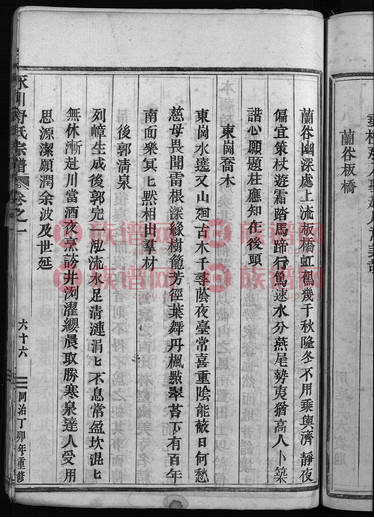 蘭谷板橋
蘭谷幽深處上流板橋虹亙幾千秋隆冬不用乘輿濟靜夜
偏宜策杖遊霜踏馬蹄行篤速水分燕尾勢夷猶高人卜築
諧心願題柱應知在後頭
東崗喬木
東崗水遶又山廻古木千章陰夜臺常喜重陰能蔽日何愁
慈母畏聞雷根深綠樹籠芳徑葉舞丹楓點翠苔下有百年
南面樂冥匕默相由羣材
後郭清泉
列嶂生成後郭完一泓流水足清漣涓匕不息常盈坎混匕
無休漸赴川當酒夜烹訪井洌濯纓晨取勝寒泉達人受用
思源潔願潤余波及世延
永川舒氏宗譜 卷之一
六十六
同治丁卯年重修
族谱网